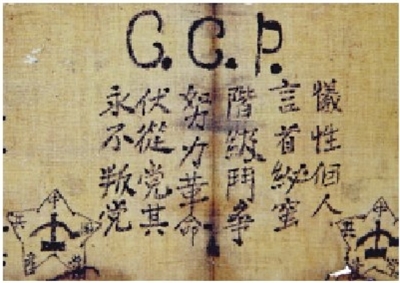 C.C.P.
犧牲個人
言首紗蜜
階級鬥爭
努力革命
伏從党其
永不叛党